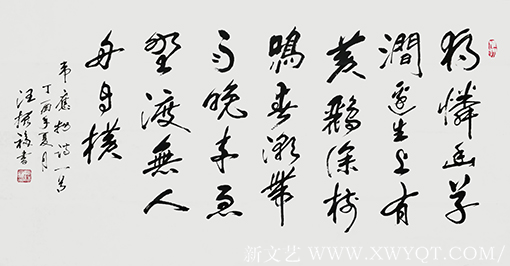 独憐幽草
澗邊生上有
黄鹂深树
鳴春潮帶
雨晚来急
野渡無人
舟自横
韦應物詩一首
丁酉年夏月
汪 福書
新文艺 WWW.XWYQT.COM